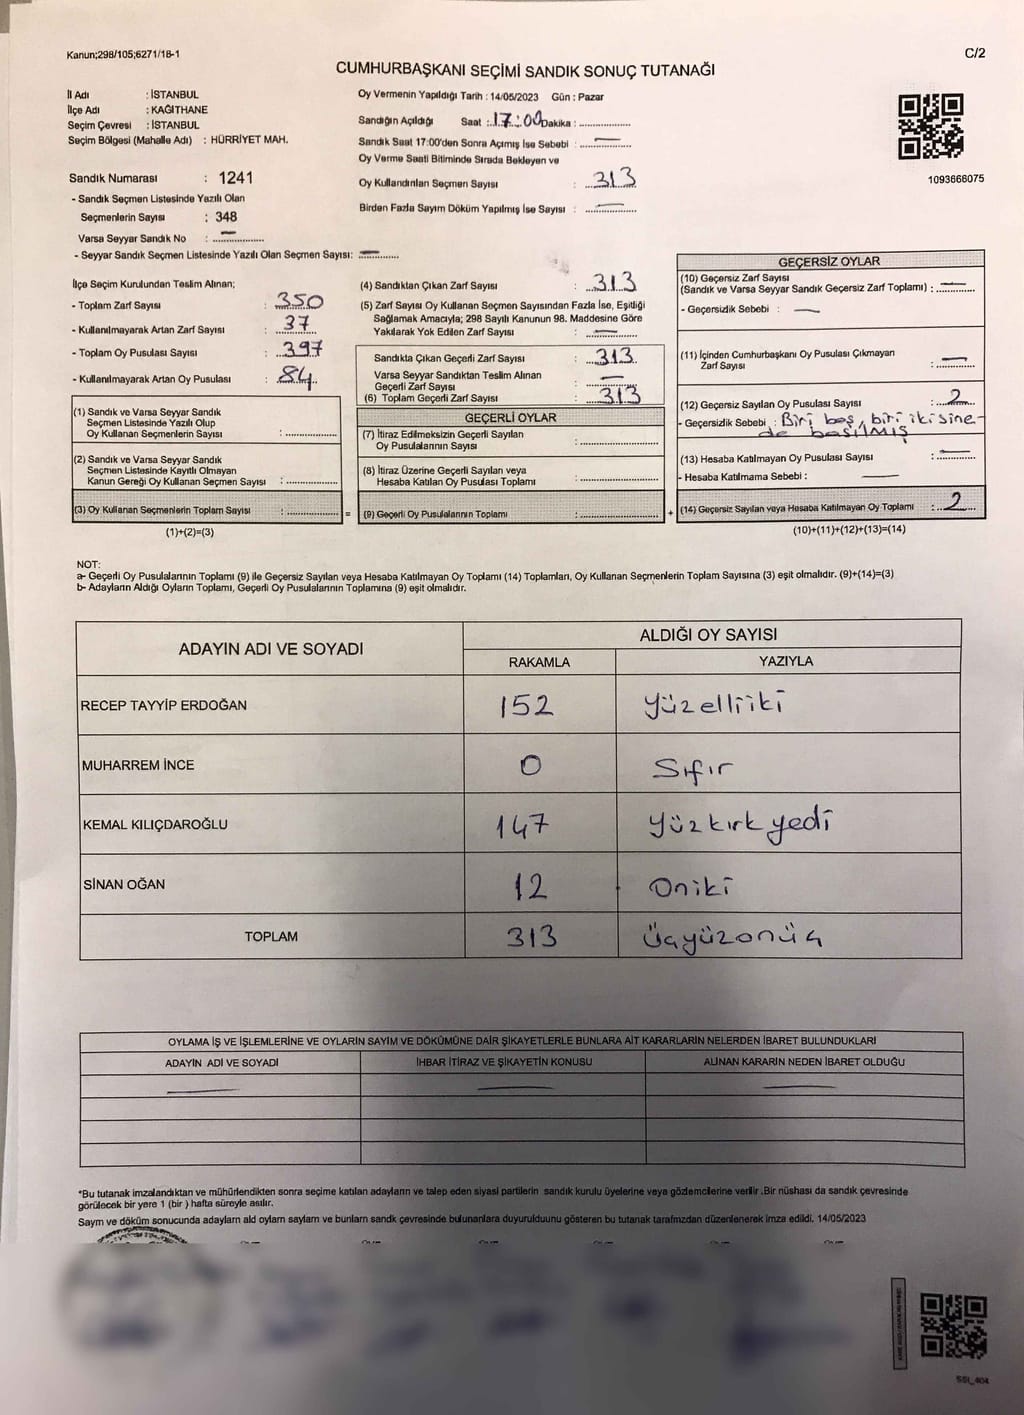 Kanun;298/105;6271/18-1
C/2
CUMHURBAŞKANI SEÇİMİ SANDIK SONUÇ TUTANAĞI
İl Adı : İSTANBUL
İlçe Adı : KAĞITHANE
Seçim Çevresi : İSTANBUL
Seçim Bölgesi (Mahalle Adı) : HÜRRİYET MAH.
Sandık Numarası : 1241
- Sandık Seçmen Listesinde Yazılı Olan
Seçmenlerin Sayısı : 348
Varsa Seyyar Sandık No : —
- Seyyar Sandık Seçmen Listesinde Yazılı Olan Seçmen Sayısı: —
Oy Vermenin Yapıldığı Tarih : 14/05/2023 Gün : Pazar
Sandığın Açıldığı Saat : 17:00 Dakika : ..............
Sandık Saat 17:00'den Sonra Açımış İse Sebebi : —
Oy Verme Saati Bitiminde Sırada Bekleyen ve
Oy Kullandırılan Seçmen Sayısı : 313
Birden Fazla Sayım Döküm Yapılmış İse Sayısı : —
1093666075
İlçe Seçim Kurulundan Teslim Alınan;
- Toplam Zarf Sayısı : 350
- Kullanılmayarak Artan Zarf Sayısı : 37
- Toplam Oy Pusulası Sayısı : 397
- Kullanılmayarak Artan Oy Pusulası : 84
(1) Sandık ve Varsa Seyyar Sandık
Seçmen Listesinde Yazılı Olup
Oy Kullanan Seçmenlerin Sayısı : ..............
(2) Sandık ve Varsa Seyyar Sandık
Seçmen Listesinde Kayıtlı Olmayan
Kanun Gereği Oy Kullanan Seçmen Sayısı : ..............
(3) Oy Kullanan Seçmenlerin Toplam Sayısı : ..............
(1)+(2)=(3)
(4) Sandıktan Çıkan Zarf Sayısı : 313
(5) Zarf Sayısı Oy Kullanan Seçmen Sayısından Fazla İse, Eşitliği
Sağlamak Amacıyla; 298 Sayılı Kanunun 98. Maddesine Göre
Yakılarak Yok Edilen Zarf Sayısı : —
Sandıkta Çıkan Geçerli Zarf Sayısı : 313
Varsa Seyyar Sandıktan Teslim Alınan
Geçerli Zarf Sayısı : —
(6) Toplam Geçerli Zarf Sayısı : 313
GEÇERLİ OYLAR
(7) İtiraz Edilmeksizin Geçerli Sayılan
Oy Pusulalarının Sayısı : ..............
(8) İtiraz Üzerine Geçerli Sayılan veya
Hesaba Katılan Oy Pusulası Toplamı : ..............
= (9) Geçerli Oy Pusulalarının Toplamı : ..............
GEÇERSİZ OYLAR
(10) Geçersiz Zarf Sayısı
(Sandık ve Varsa Seyyar Sandık Geçersiz Zarf Toplamı) : —
- Geçersizlik Sebebi : —
(11) İçinden Cumhurbaşkanı Oy Pusulası Çıkmayan
Zarf Sayısı : —
(12) Geçersiz Sayılan Oy Pusulası Sayısı : 2
- Geçersizlik Sebebi : Biri boş, biri ikisine-
de basılmış
(13) Hesaba Katılmayan Oy Pusulası Sayısı : —
- Hesaba Katılmama Sebebi : —
+ (14) Geçersiz Sayılan veya Hesaba Katılmayan Oy Toplamı : 2
(10)+(11)+(12)+(13)=(14)
NOT:
a- Geçerli Oy Pusulalarının Toplamı (9) ile Geçersiz Sayılan veya Hesaba Katılmayan Oy Toplamı (14) Toplamları, Oy Kullanan Seçmenlerin Toplam Sayısına (3) eşit olmalıdır. (9)+(14)=(3)
b- Adayların Aldığı Oyların Toplamı, Geçerli Oy Pusulalarının Toplamına (9) eşit olmalıdır.
ADAYIN ADI VE SOYADI
ALDIĞI OY SAYISI
RAKAMLA YAZIYLA
RECEP TAYYİP ERDOĞAN 152 Yüzelliiki
MUHARREM İNCE 0 Sıfır
KEMAL KILIÇDAROĞLU 147 Yüzkırkyedi
SİNAN OĞAN 12 Oniki
TOPLAM 313 Üçyüzonüç
OYLAMA İŞ VE İŞLEMLERİNE VE OYLARIN SAYIM VE DÖKÜMÜNE DAİR ŞİKAYETLERLE BUNLARA AİT KARARLARIN NELERDEN İBARET BULUNDUKLARI
ADAYIN ADI VE SOYADI İHBAR İTİRAZ VE ŞİKAYETİN KONUSU ALINAN KARARIN NEDEN İBARET OLDUĞU
— — —
*Bu tutanak imzalandıktan ve mühürlendikten sonra seçime katılan adayların ve talep eden siyasi partilerin sandık kurulu üyelerine veya gözlemcilerine verilir .Bir nüshası da sandık çevresinde
görülecek bir yere 1 (bir ) hafta süreyle asılır.
Sayım ve döküm sonucunda adayların ald oyların sayıların ve bunların sandk çevresinde bulunanlara duyurulduunu gösteren bu tutanak tarafmzdan düzenlenerek imza edildi. 14/05/2023
SSI_404